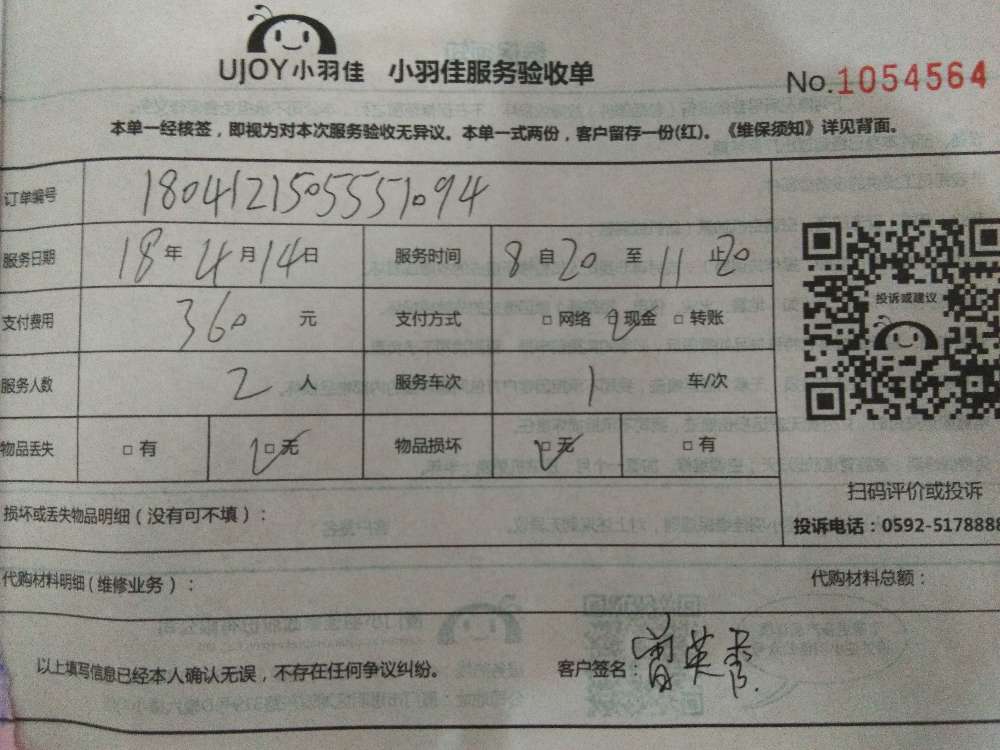 UJOY小羽佳 小羽佳服务验收单
No.1054564
本单一经核签，即视为对本次服务验收无异议。本单一式两份，客户留存一份(红)。《维保须知》详见背面。
订单编号 1804121505551094
服务日期 18年4月14日 服务时间 8自20至11止20
支付费用 360 元 支付方式 □网络 □现金 □转账
服务人数 2 人 服务车次 1 车/次
物品丢失 □有 □无 物品损坏 □无 □有
投诉或建议
扫码评价或投诉
投诉电话：0592-5178888
损坏或丢失物品明细（没有可不填）：
代购材料明细（维修业务）： 代购材料总额：
以上填写信息已经本人确认无误，不存在任何争议纠纷。 客户签名：曾英秀